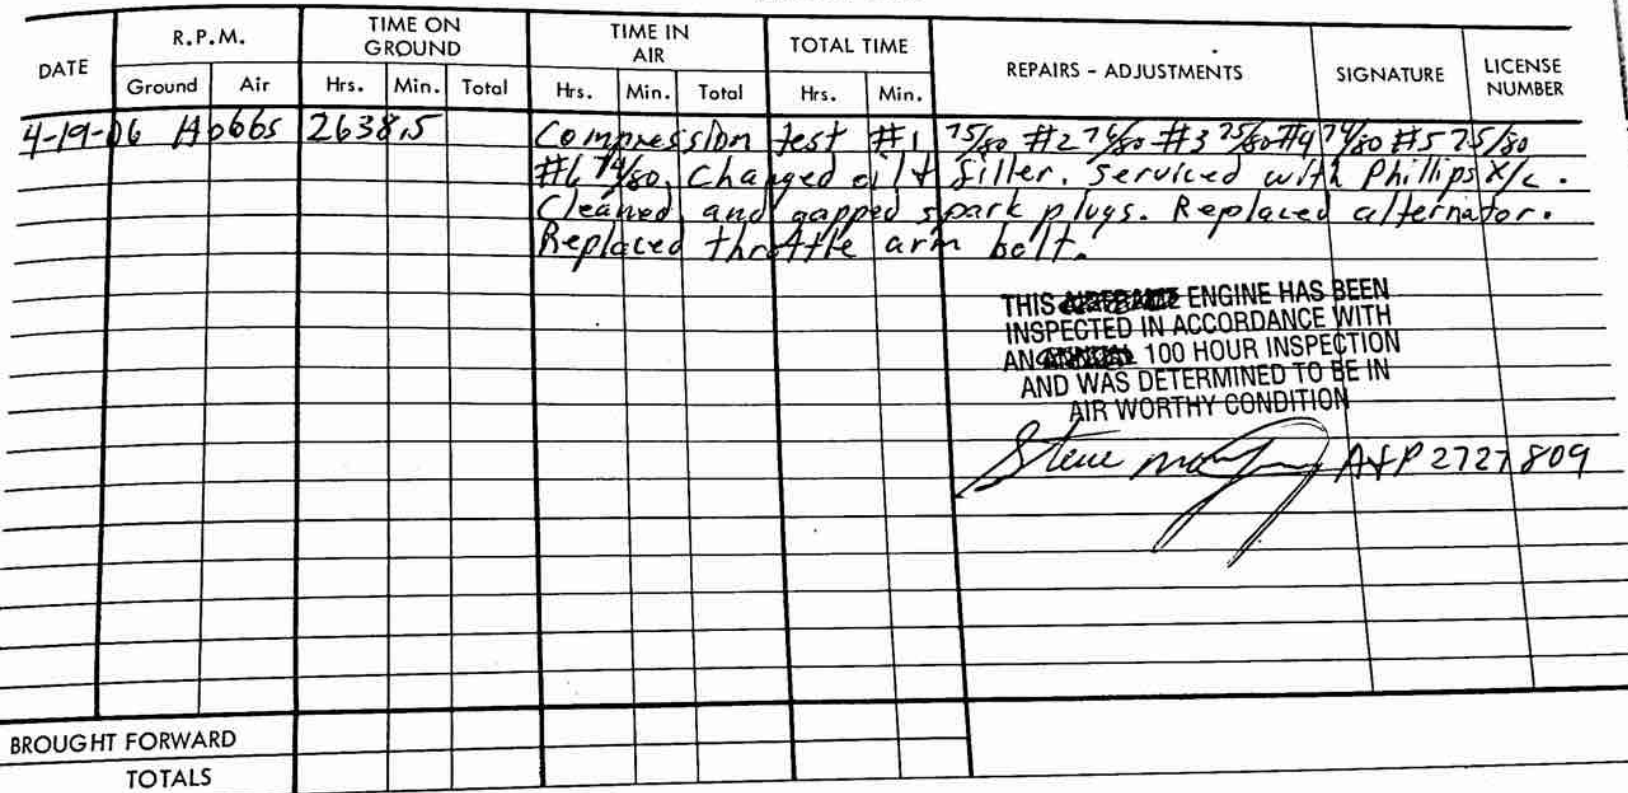 DATE R.P.M. TIME ON GROUND TIME IN AIR TOTAL TIME REPAIRS - ADJUSTMENTS SIGNATURE LICENSE NUMBER
Ground Air Hrs. Min. Total Hrs. Min. Total Hrs. Min.
4-19-06 Hobbs 2638.5 Compression test #1 75/80 #2 76/80 #3 75/80 #4 74/80 #5 75/80
#6 74/80. Changed oil & filler. Serviced with Phillips X/C.
Cleaned and gapped spark plugs. Replaced alternator.
Replaced throttle arm bolt.
THIS ENGINE HAS BEEN
INSPECTED IN ACCORDANCE WITH
AN 100 HOUR INSPECTION
AND WAS DETERMINED TO BE IN
AIR WORTHY CONDITION
Steve A&P 2727809
BROUGHT FORWARD
TOTALS